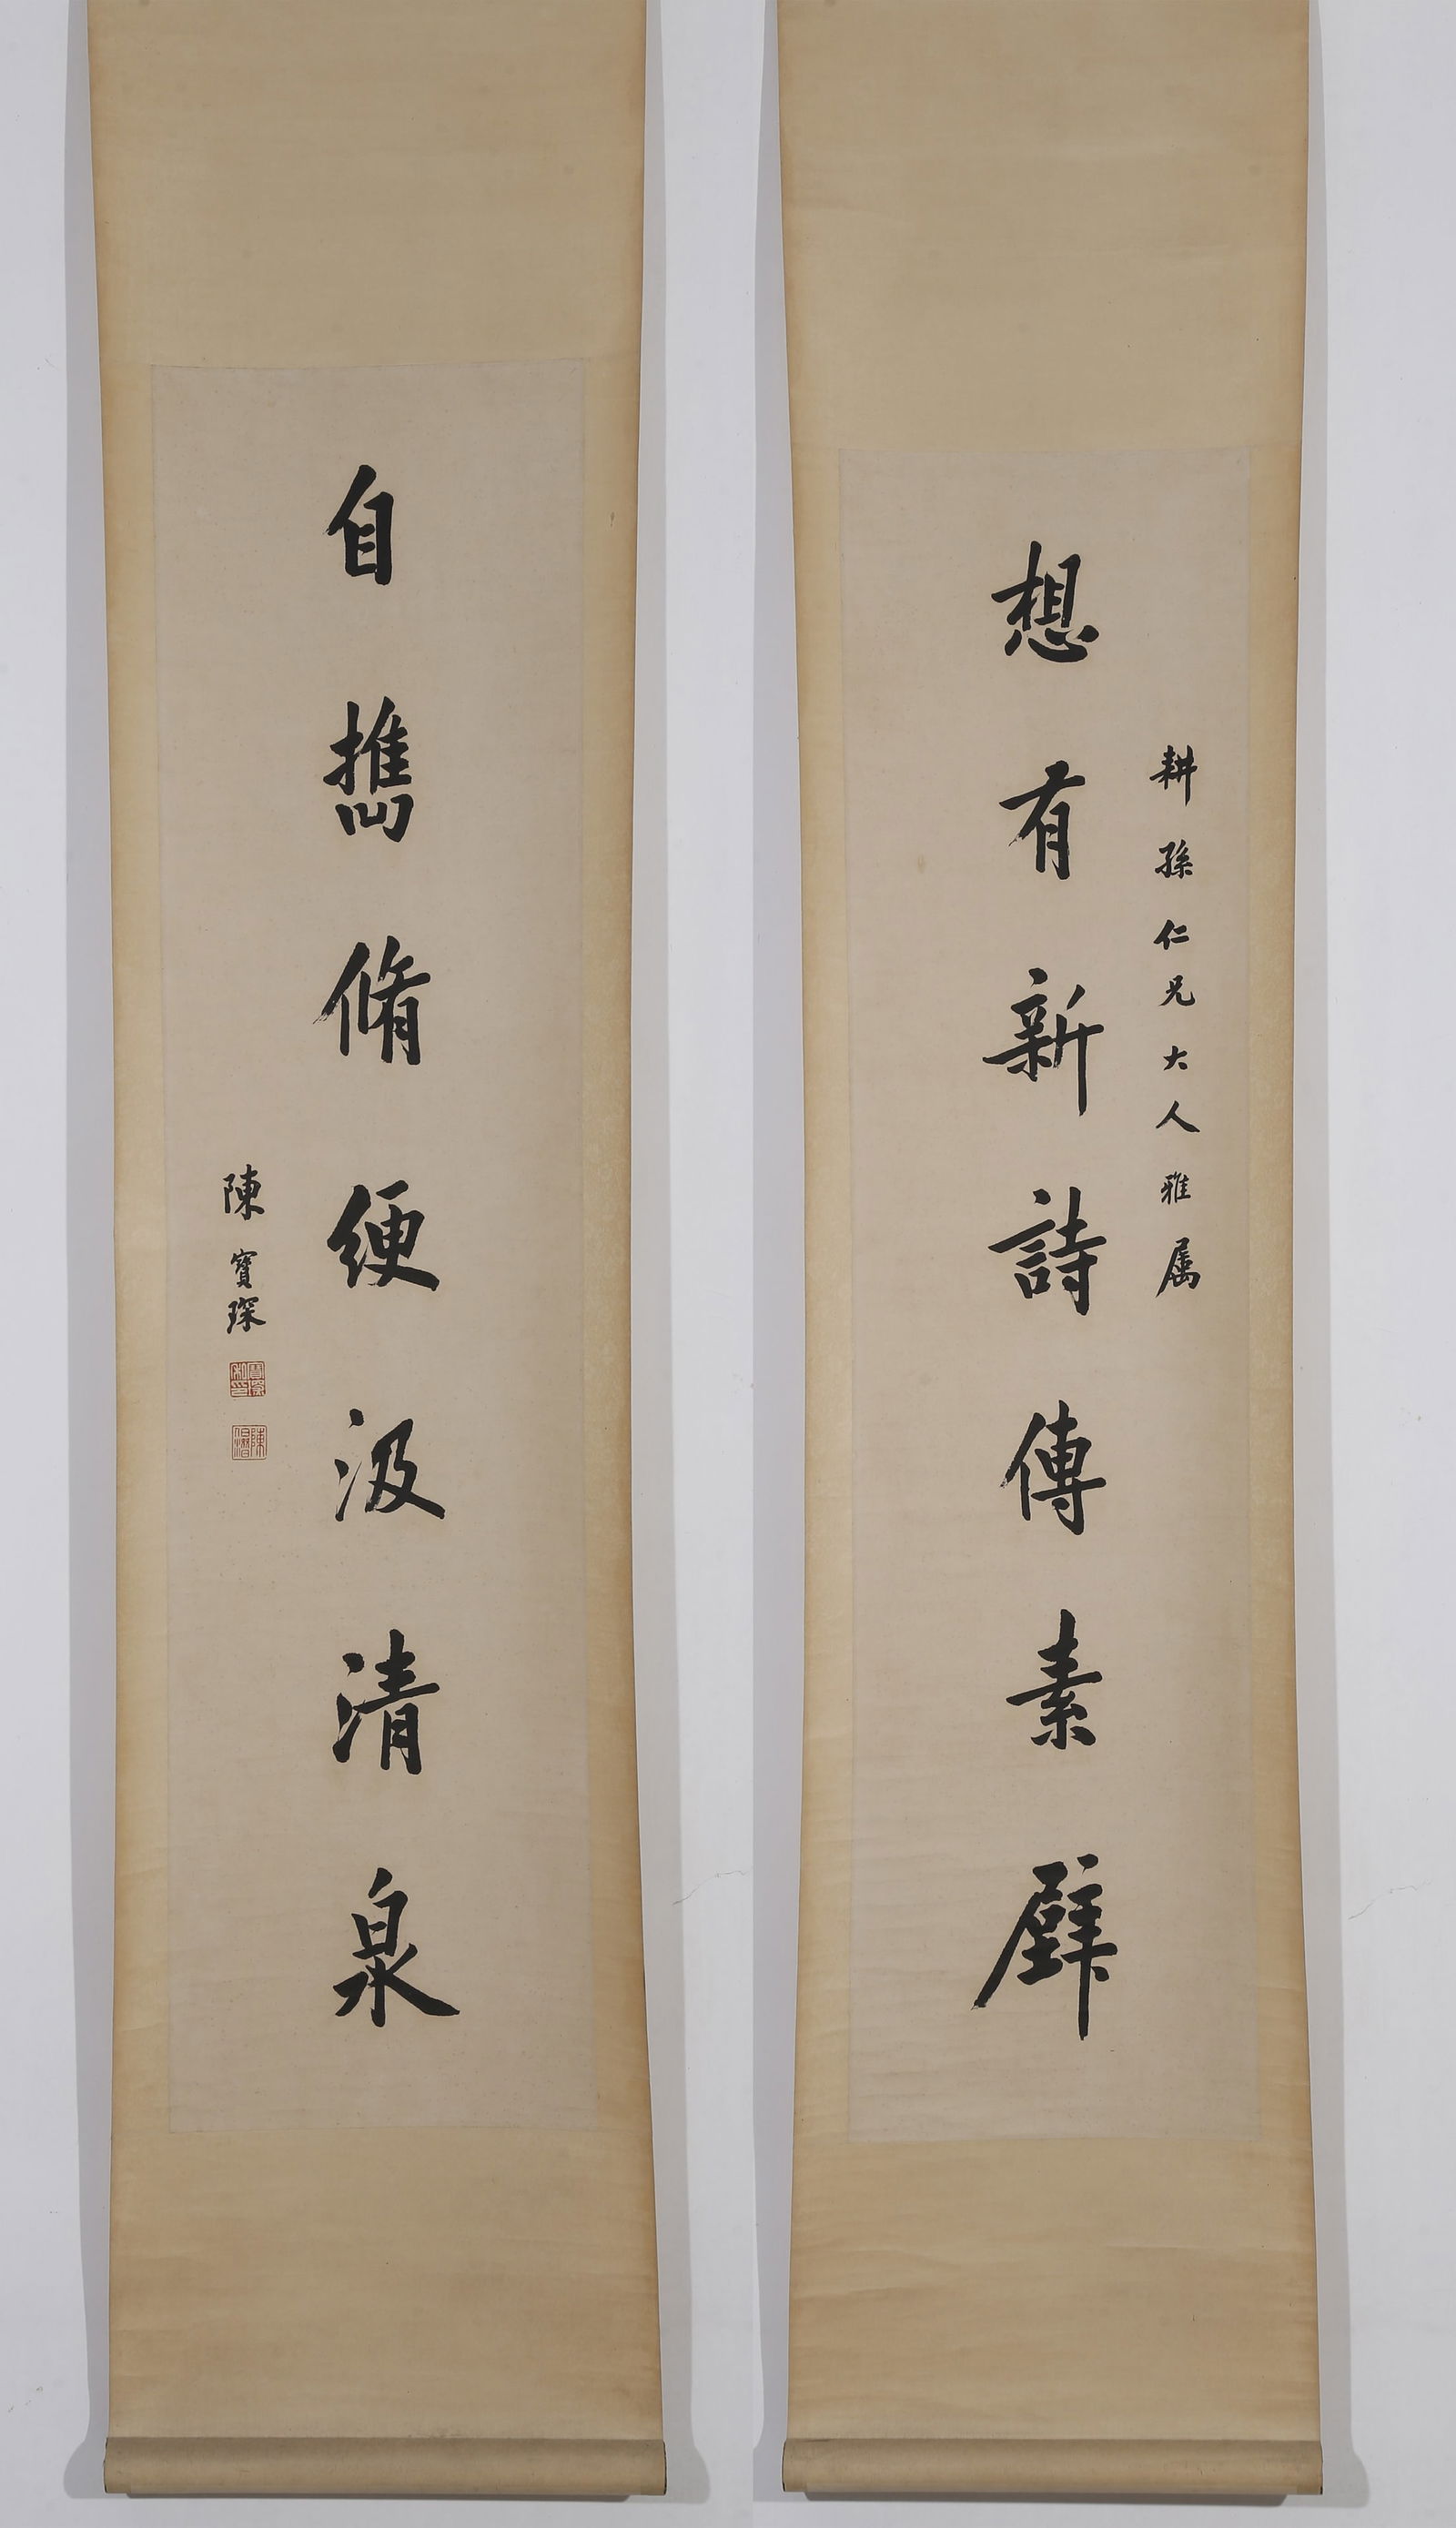 耕孫仁兄大人雅属
想有新詩傳素壁
自擕脩綆汲清泉
陳寶琛
陳伯潛